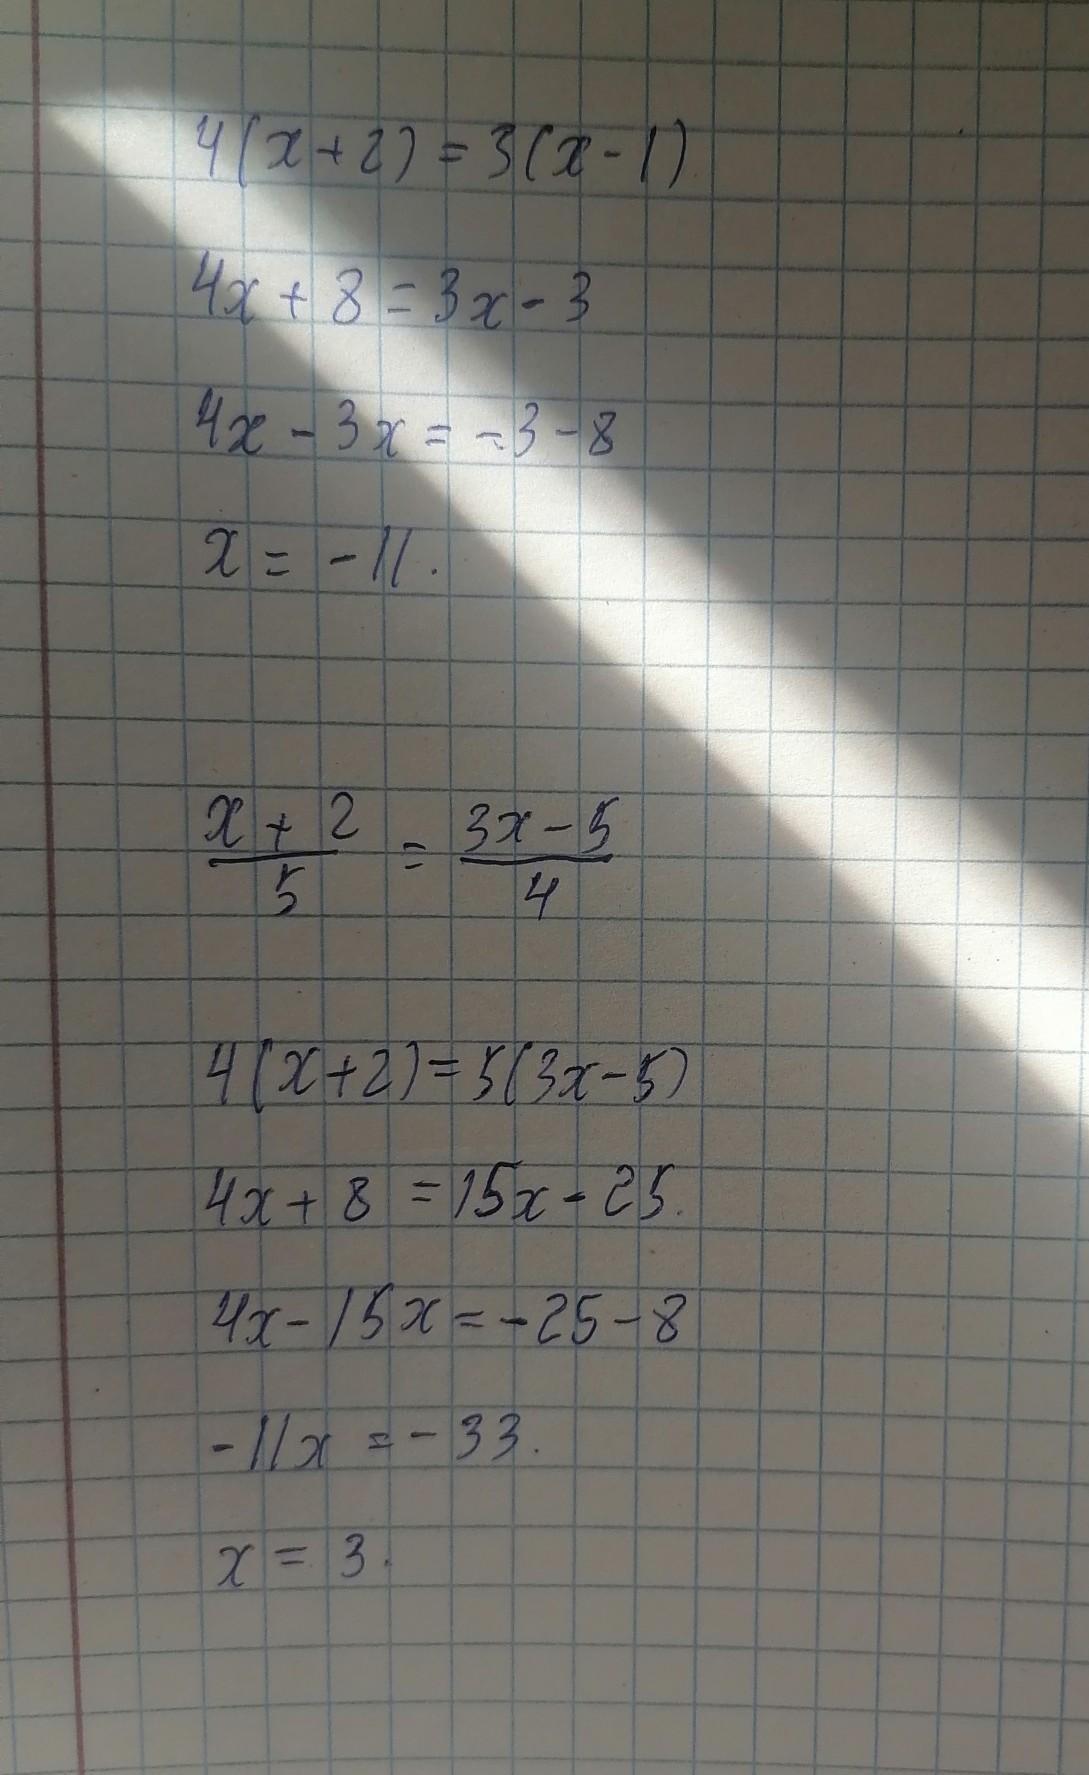 4(x+2)=3(x-1)
4x+8=3x-3
4x-3x=-3-8
x=-11.
x+2/5 = 3x-5/4
4(x+2)=5(3x-5)
4x+8=15x-25.
4x-15x=-25-8
-11x=-33.
x=3.